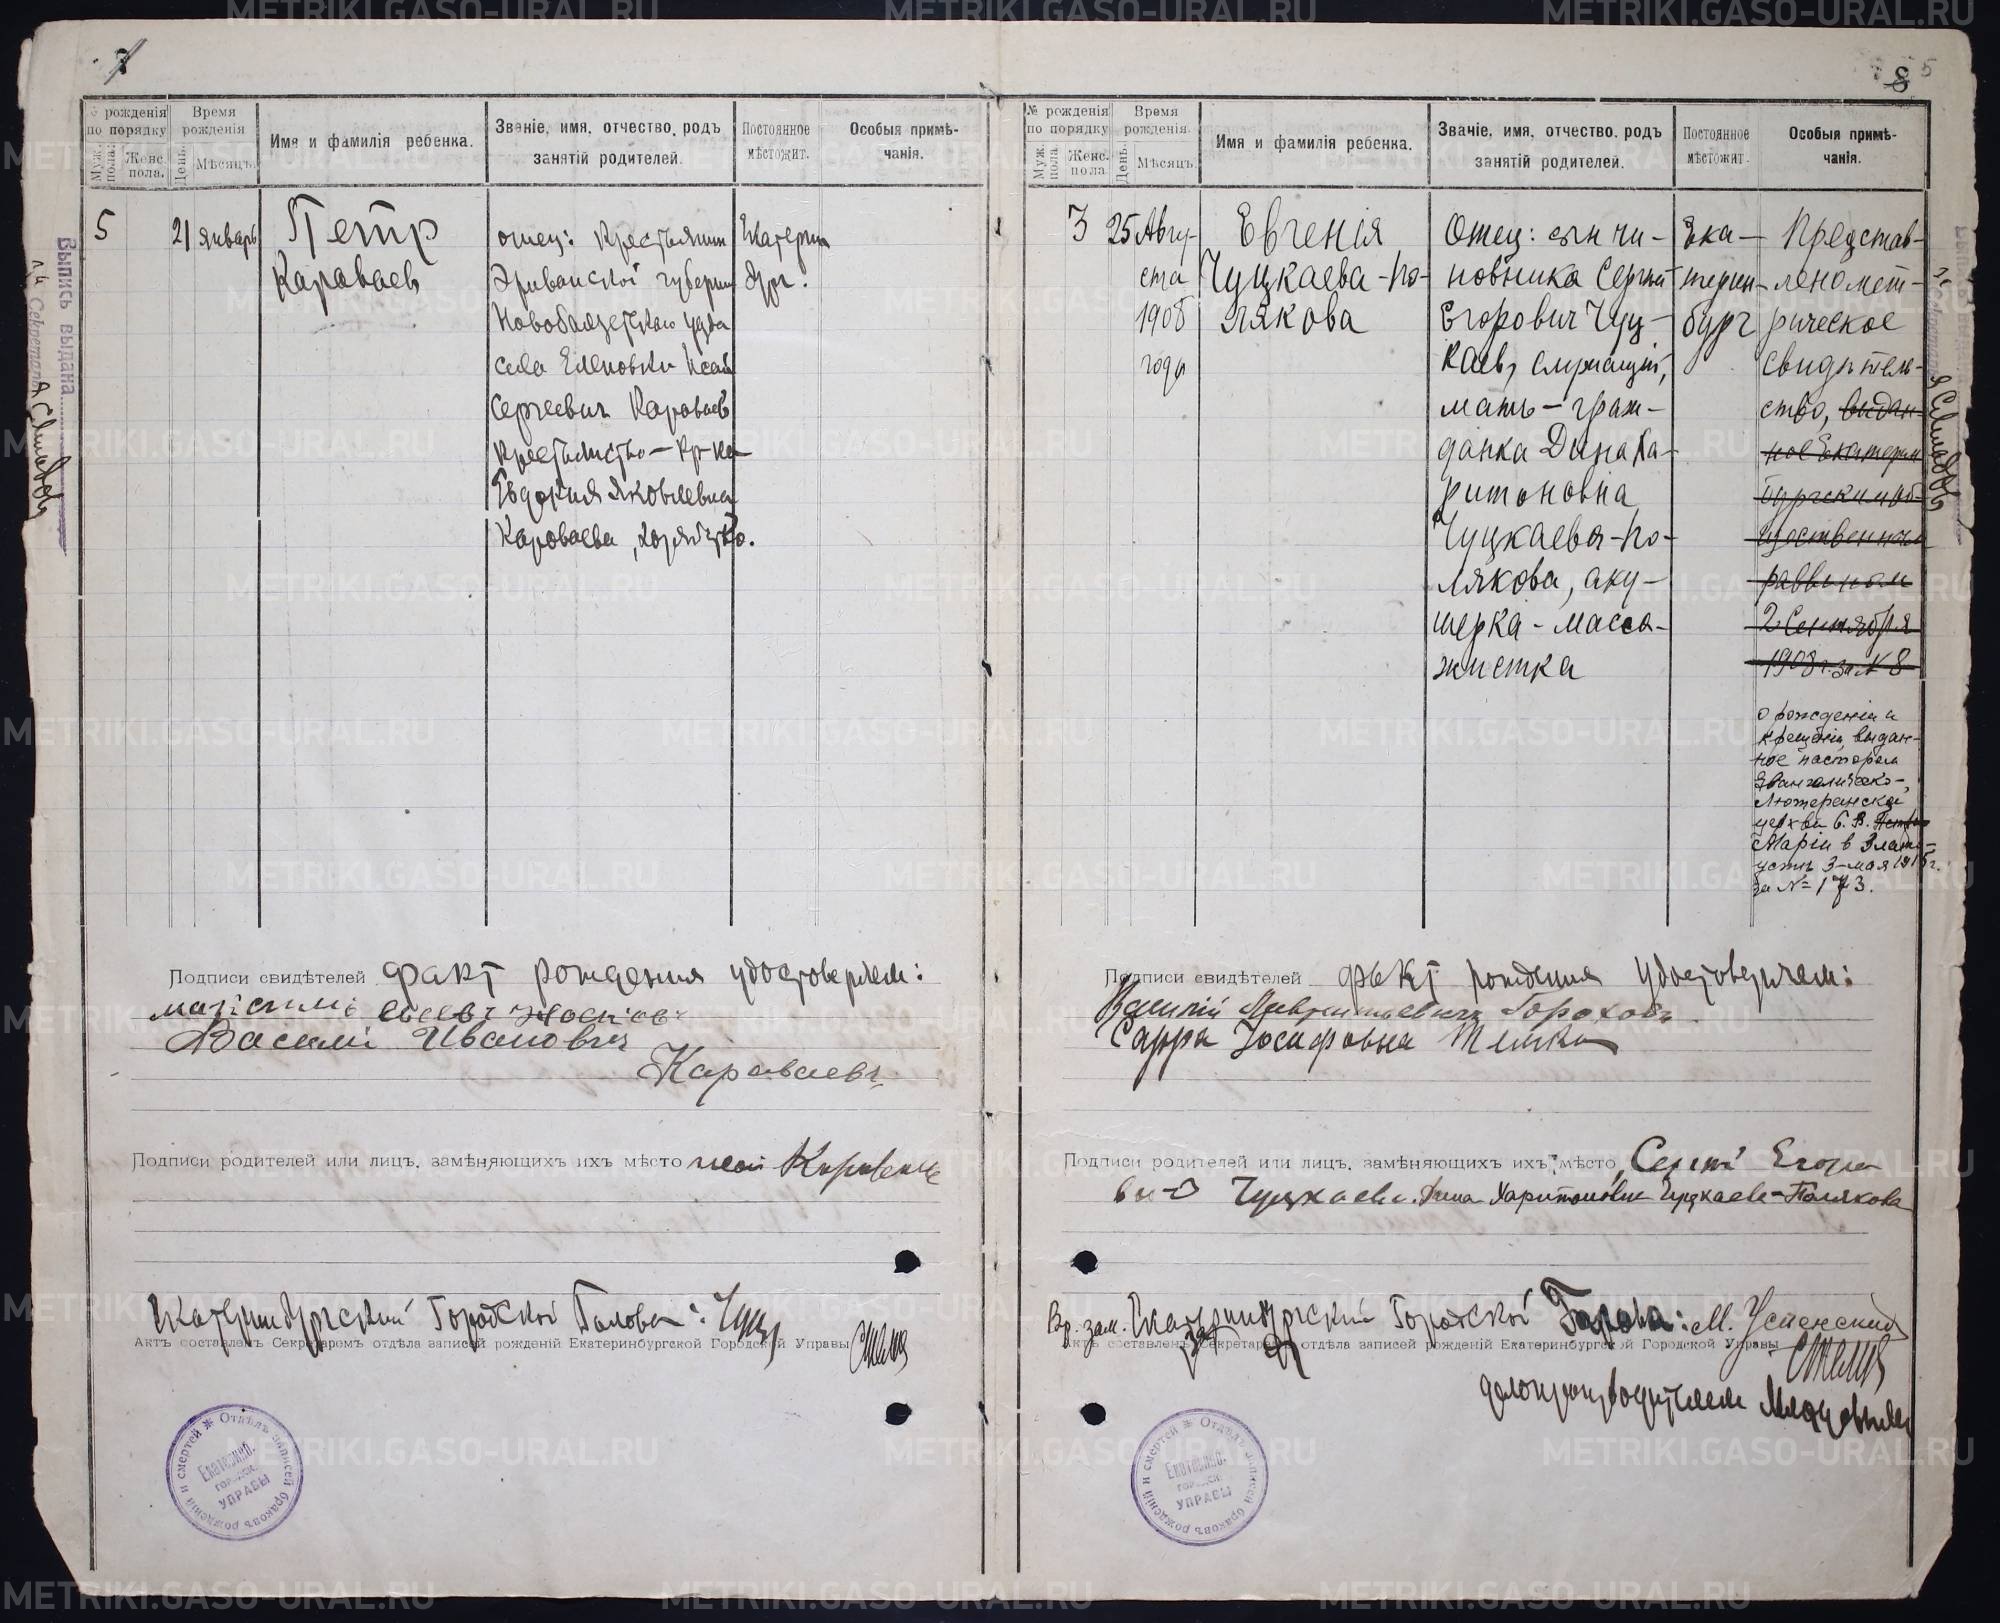 7
№ рожденія по порядку
Муж. пола.
Женс. пола.
Время рожденія
День.
Мѣсяцъ.
Имя и фамилія ребенка.
Званіе, имя, отчество, родъ
занятій родителей.
Постоянное
мѣстожит.
Особыя примѣ-
чанія.
5
21 январь
Петр
Караваев
отец: крестьянин
Эриванской губернии
Новобаязетскаго уезда
села Еленовки Исай
Сергеевич Караваев
крестьянство — кр-ка
Евдокия Яковлевна
Караваева, хозяйство.
Екатерин
бург.
Выпись выдана
Секретарь
Подписи свидѣтелей факт рождения удостоверяем:
Василий Ивановичъ
Караваевъ
Подписи родителей или лицъ, замѣняющихъ ихъ мѣсто Исай Караваевъ
Екатеринбургский Городской Голова:
Актъ составленъ Секретаремъ отдѣла записей рожденій Екатеринбургской Городской Управы
Отдѣлъ записей браковъ рожденій и смертей
Екатеринб.
городск.
УПРАВЫ
8
5
№ рожденія по порядку
Муж. пола.
Женс. пола
Время рожденія.
День.
Мѣсяцъ
Имя и фамилія ребенка.
Званіе, имя, отчество, родъ
занятій родителей.
Постоянное
мѣстожит.
Особыя примѣ-
чанія.
3
25 Авгу-
ста
1908
года
Евгенія
Чуцкаева-По-
лякова
Отец: сын чи-
новника Сергей
Егорович Чуц-
каев, служащий,
мать — граж-
данка Дина Ха-
ритоновна
Чуцкаева-По-
лякова, аку-
шерка - масса-
жистка
Ека-
терин-
бург
Представ-
лено мет-
рическое
свидетель-
ство, выдан-
ное Екатерин
бургским об-
щественным
раввином
2 Сентября
1908 г. за № 8
о рождении и
крещении, выдан-
ное пастором
Евангелическо-
Лютеранской
церкви
Марии в Злато-
усте 3-мая 1915 г.
за № 173.
Подписи свидѣтелей факт рождения удостоверяем:
Горохов
Сарра Иосифовна
Подписи родителей или лицъ, замѣняющихъ ихъ мѣсто, Сергей Егоро
вич Чуцкаев. Дина Харитоновна Чуцкаева-Полякова
Вр. зам. Екатеринбургский Городской Голова: М. Успенский
Актъ составленъ Секретаремъ отдѣла записей рожденій Екатеринбургской Городской Управы
делопроизводителем
Отдѣлъ записей браковъ рожденій и смертей
Екатеринб.
городск.
УПРАВЫ
METRIKI.GASO-URAL.RU